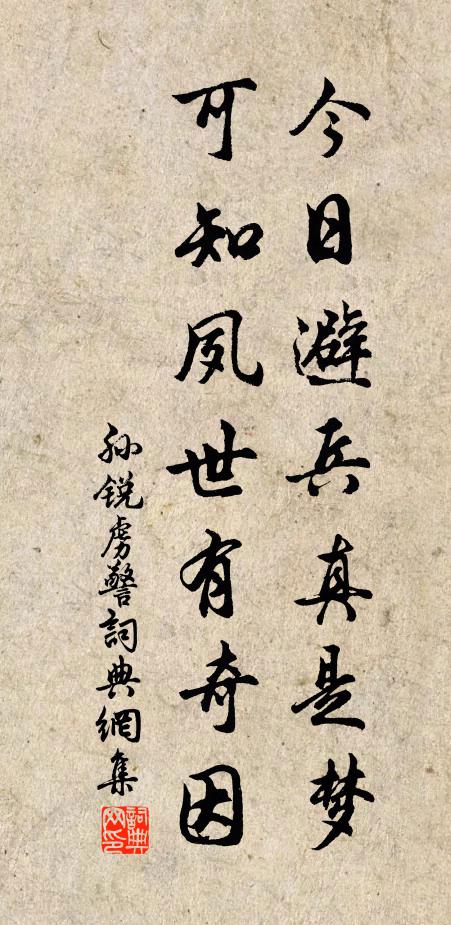 今日避兵真是梦
可知夙世有奇因
孙锐虏警詞典網集
詞典网印